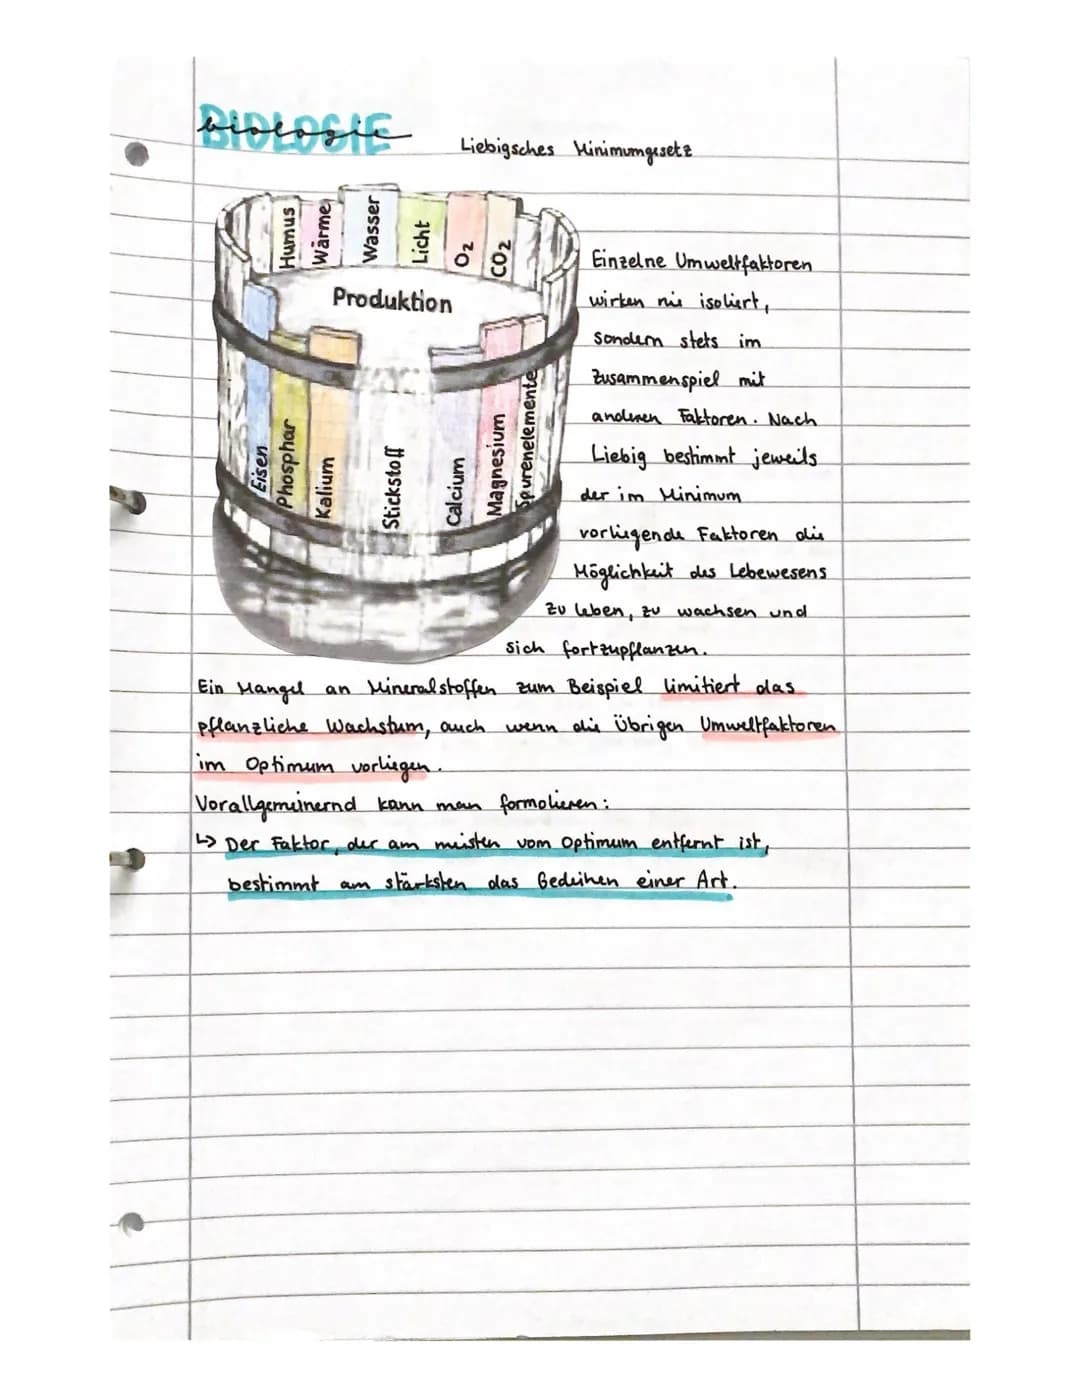 BIOLOGIE
biologie
Liebigsches Minimumgesetz
Humus
Wärme
Wasser
Licht
O₂
CO₂
Produktion
Eisen
Phosphar
Kalium
Stickstoff
Calcium
Magnesium
Spurenelemente
Einzelne Umweltfaktoren
wirken nie isoliert,
sondern stets im
Zusammenspiel mit
anderen Faktoren. Nach
Liebig bestimmt jeweils
der im Minimum
vorliegende Faktoren die
Möglichkeit des Lebewesens
zu leben, zu wachsen und
sich fortzupflanzen.
Ein Mangel an Mineralstoffen zum Beispiel limitiert das
pflanzliche Wachstum, auch wenn die Übrigen Umweltfaktoren
im Optimum vorliegen.
Vorallgemeinernd kann man formolieren:
↳ Der Faktor, der am meisten vom Optimum entfernt ist,
bestimmt am stärksten das Gedeihen einer Art.